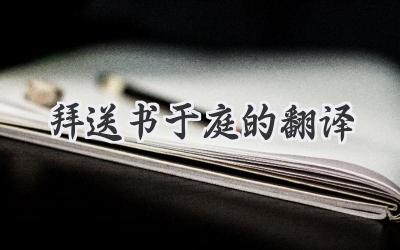 拜送书于庭的翻译